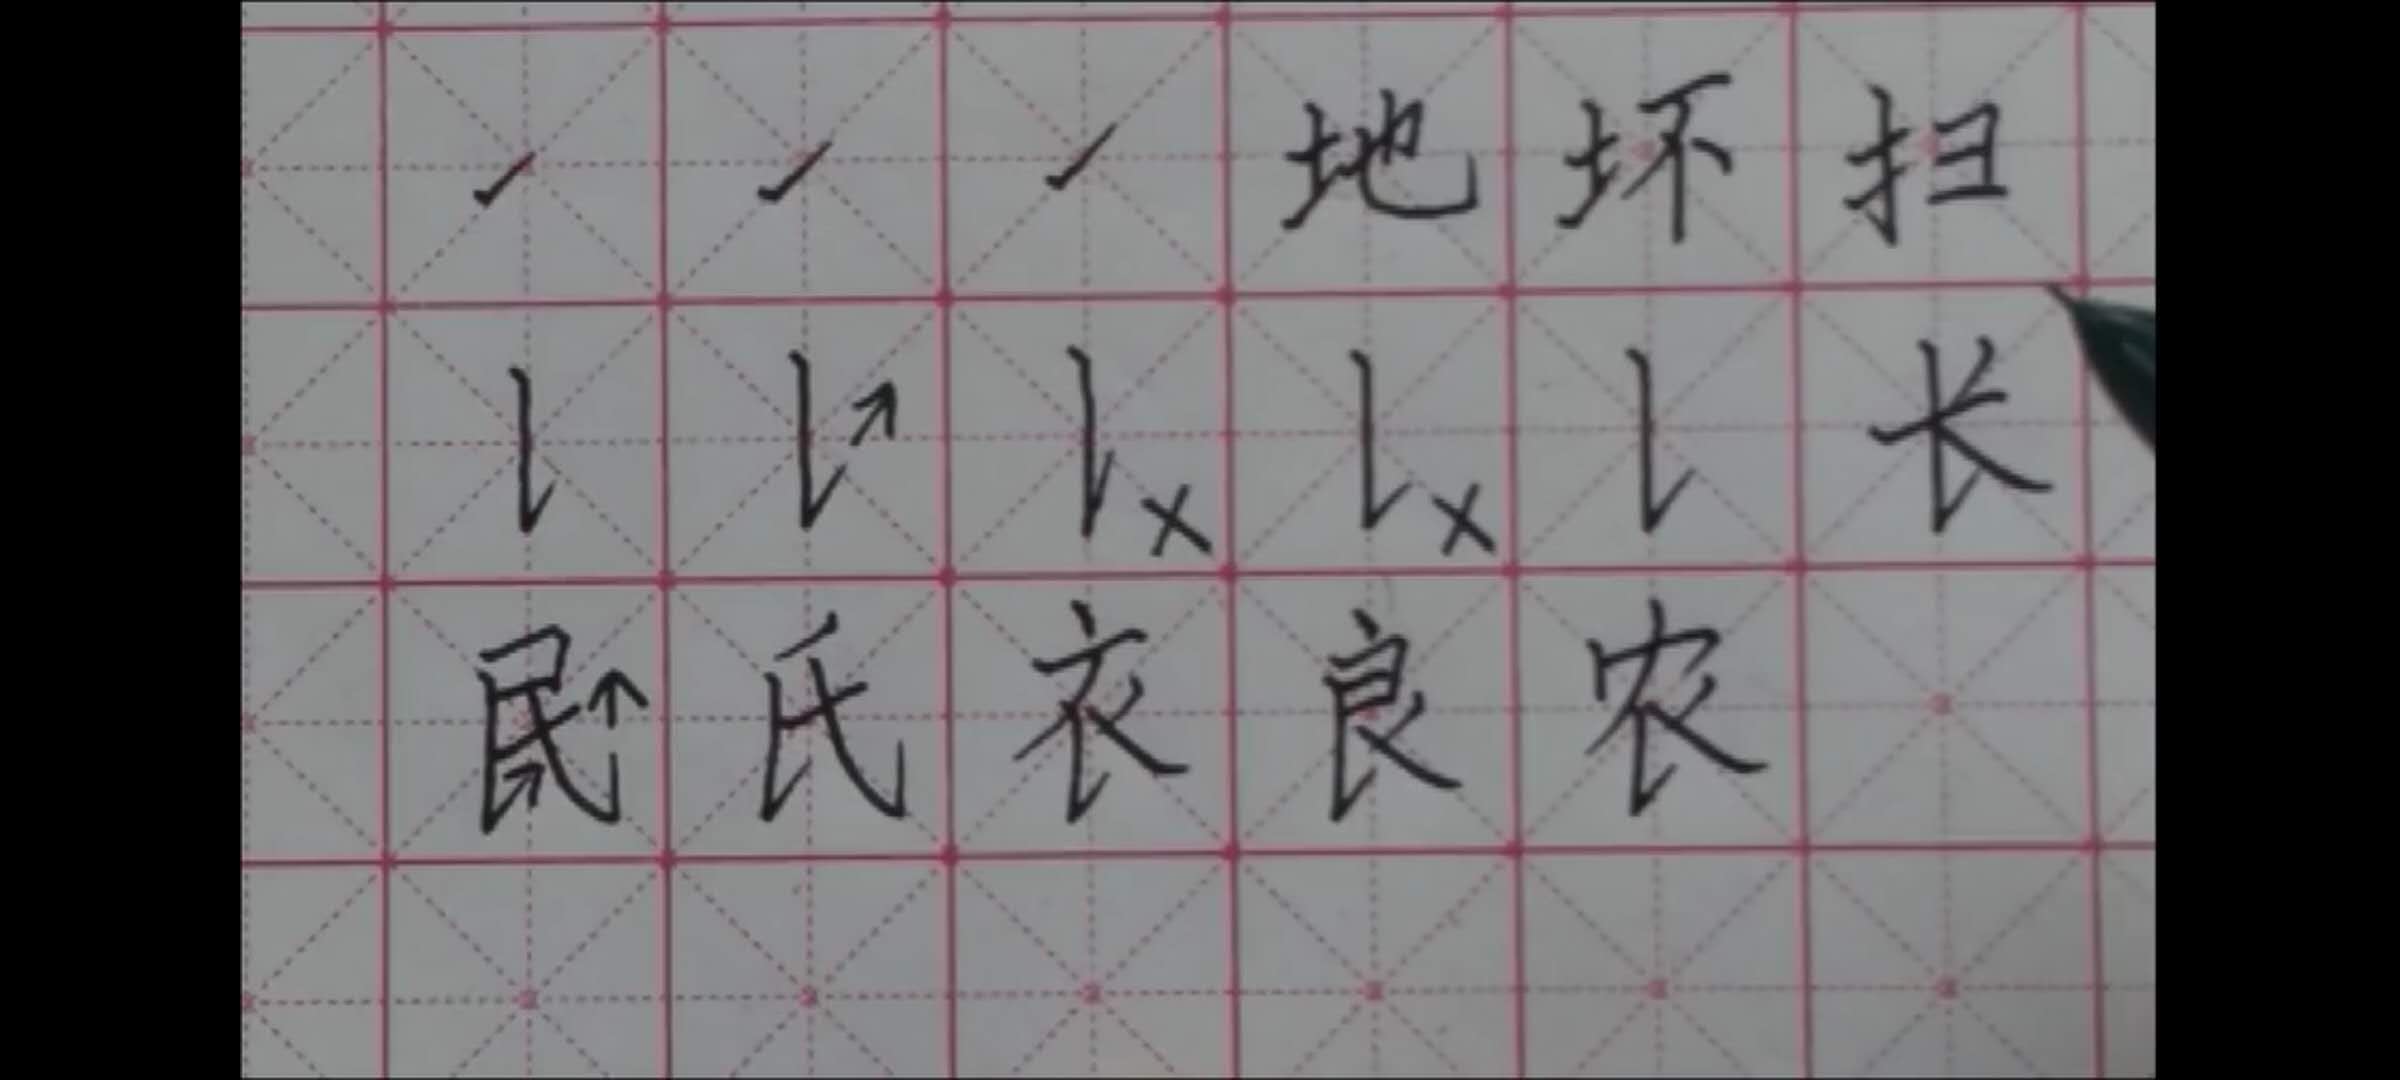 ㇀ ㇀ ㇀ 地 坏 扫
𠄌 𠄌 ↗ 𠄌 × 𠄌 × 𠄌 长
民 ↗ ↑ 氏 衣 良 农